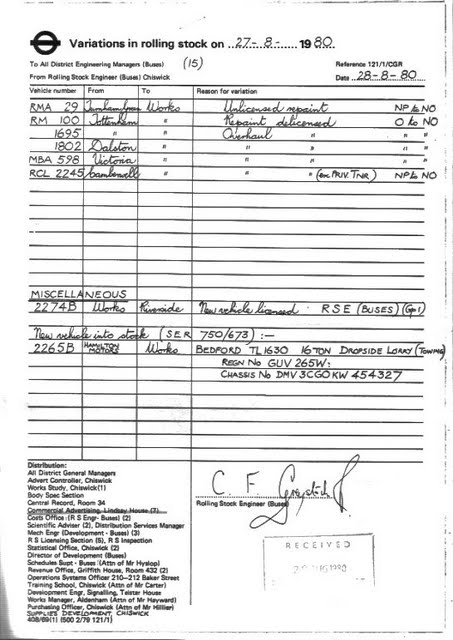 Variations in rolling stock on 27-8- 1980
To All District Engineering Managers (Buses) (15) Reference 121/1/CGR
From Rolling Stock Engineer (Buses) Chiswick Date 28-8-80
Vehicle number From To Reason for variation
RMA 29 Turnham Green Works Unlicensed repaint NP to NO
RM 100 Tottenham " Repaint delicensed O to NO
1695 " " Overhaul " " "
1802 Dalston " " " " "
MBA 598 Victoria " " " " "
RCL 2245 Camberwell " " (ex PRIV. TNR) NP to NO
MISCELLANEOUS
2274B Works Riverside New vehicle licensed - RSE (BUSES) (Gp 1)
New vehicle into stock (SER 750/673) :-
2265B HAMILTON MOTORS Works BEDFORD TL1630 16 TON DROPSIDE LORRY (TOWING)
REGN No GUV 265W:
CHASSIS No DMV 3CGOKW 454327
Distribution:
All District General Managers
Advert Controller, Chiswick
Works Study, Chiswick (1)
Body Spec Section
Central Record, Room 34
Commercial Advertising, Lindsey House (7)
Costs Office (R S Engr- Buses) (2)
Scientific Adviser (2), Distribution Services Manager
Mech Engr (Development - Buses) (3)
R S Licensing Section (5), R S Inspection
Statistical Office, Chiswick (2)
Director of Development (Buses)
Schedules Supt - Buses (Attn of Mr Hyslop)
Revenue Office, Griffith House, Room 432 (2)
Operations Systems Officer 210-212 Baker Street
Training School, Chiswick (Attn of Mr Carter)
Development Engr, Signalling, Telstar House
Works Manager, Aldenham (Attn of Mr Hayward)
Purchasing Officer, Chiswick (Attn of Mr Hillier)
SUPPLIES DEVELOPMENT, CHISWICK
408/69(1) (500 2/79 121/1)
C. F.
Rolling Stock Engineer (Buses)
RECEIVED
1980